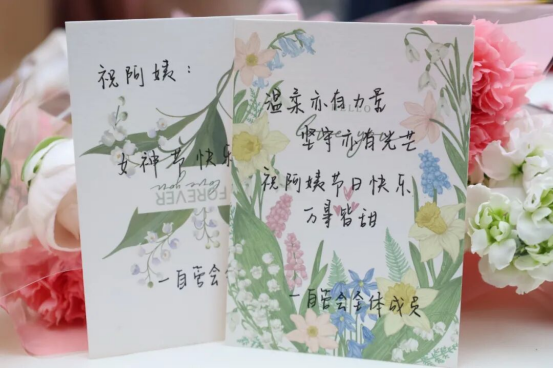 祝阿姨：
女神节快乐
FOREVER
love you
一自营会
温柔亦有力量
坚守亦有光芒
祝阿姨节日快乐
万事皆甜
一自营会全体成员